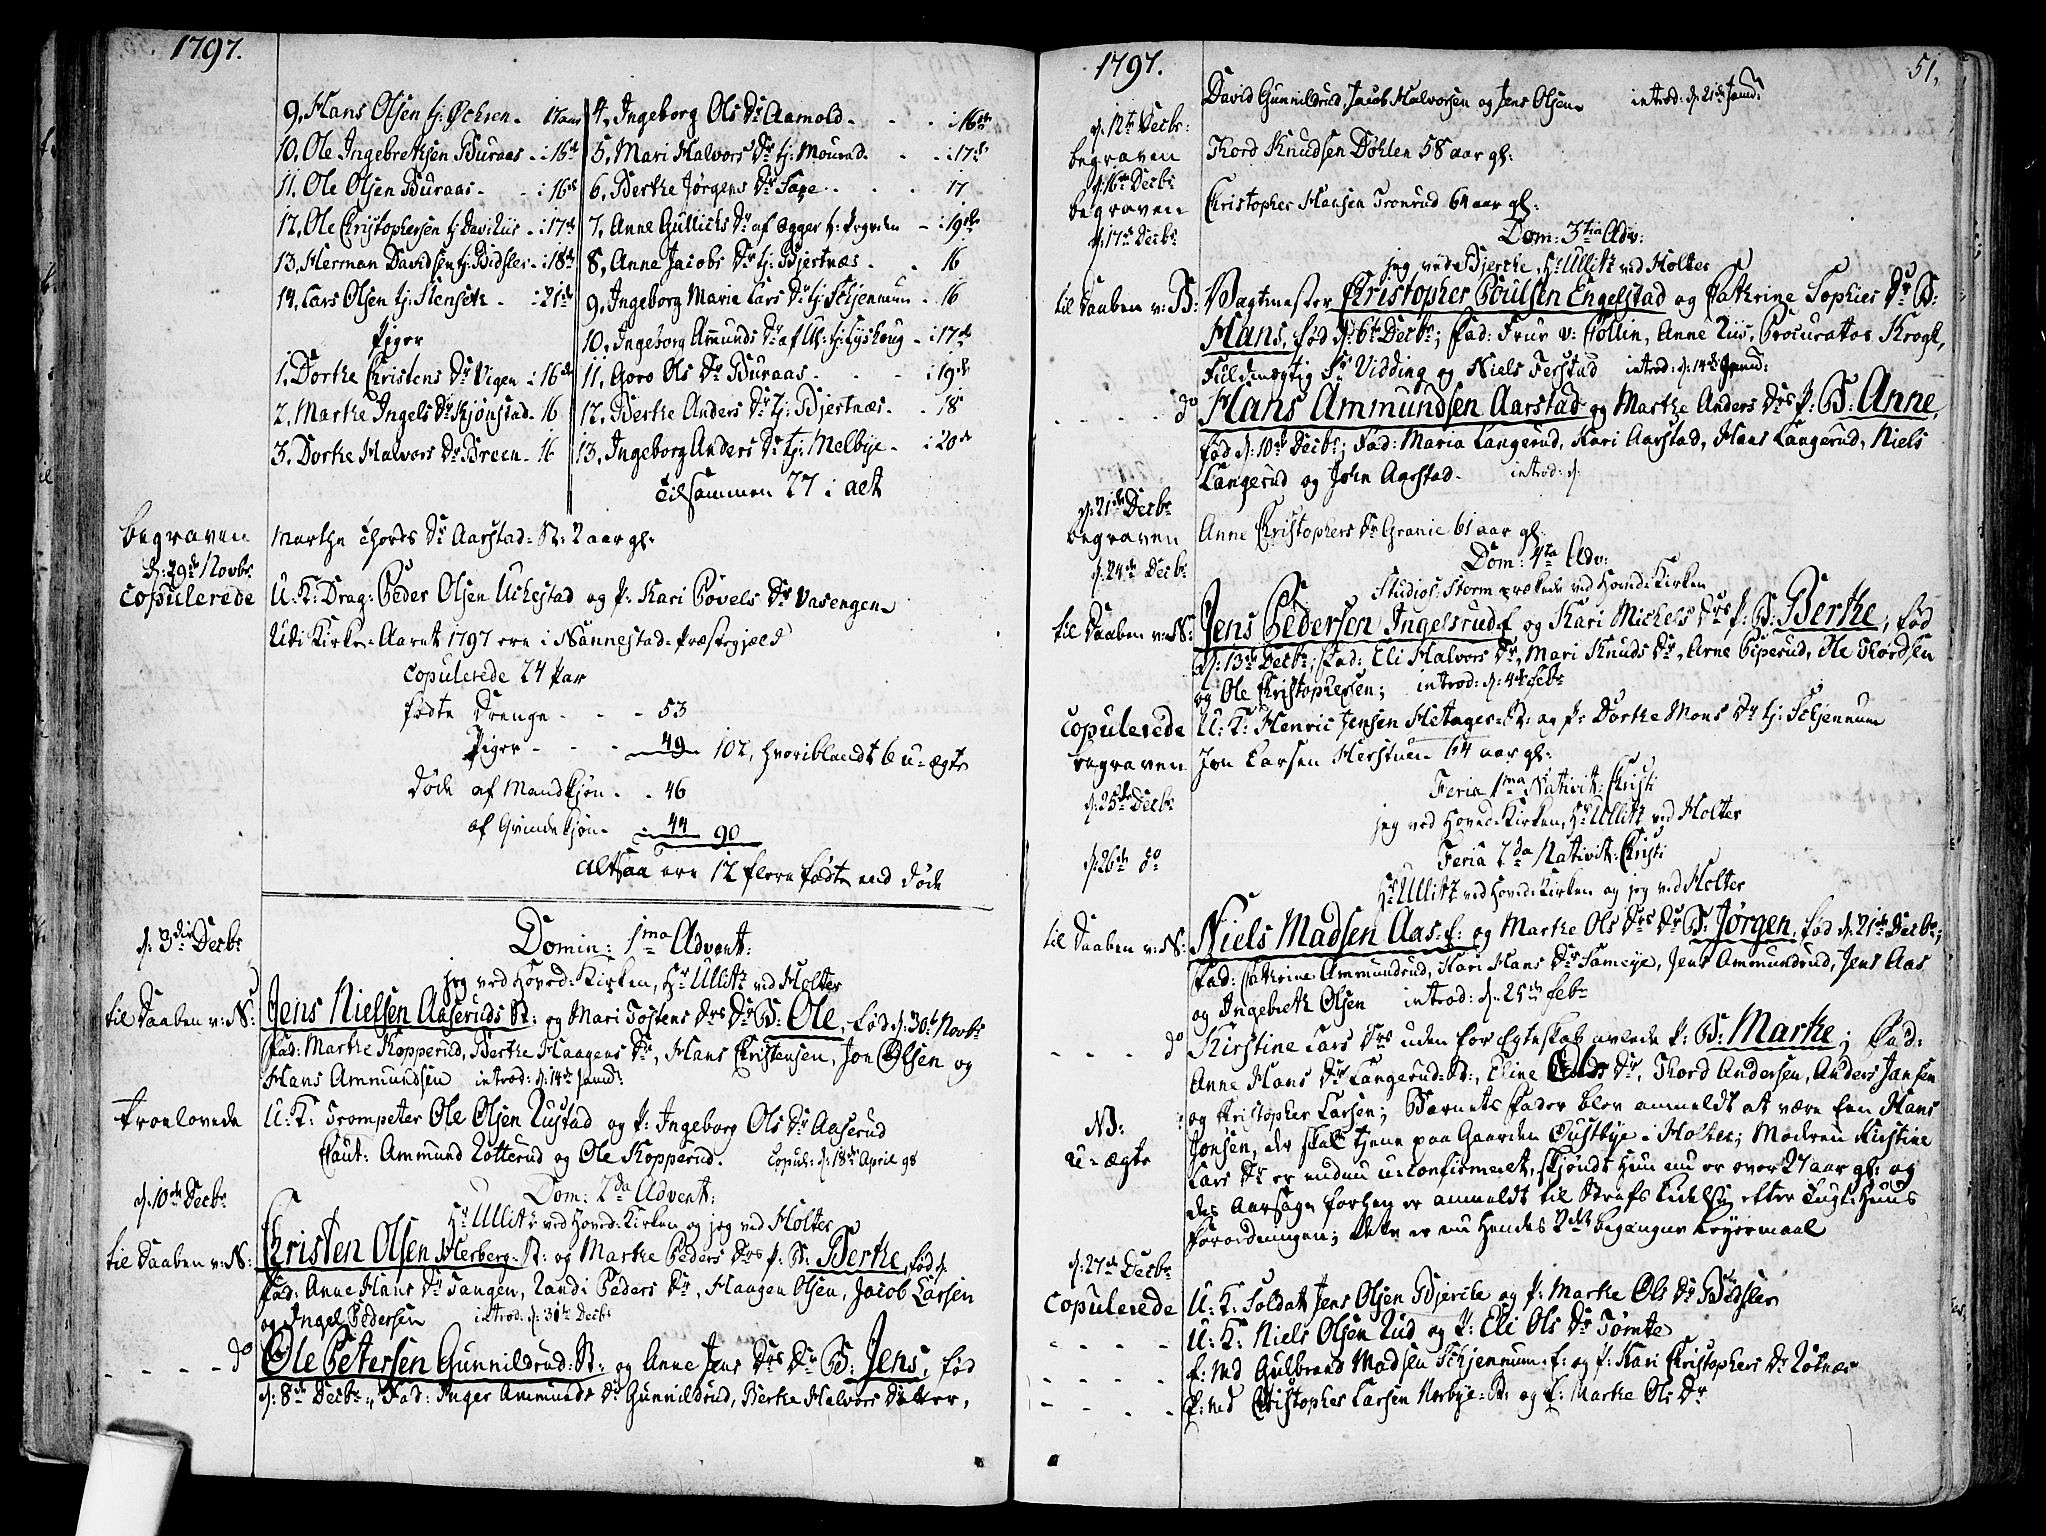 1797.
9, Hans Olsen tj: Øchren - 17 aar
10. Ole Ingebretsen Buraas - i 16de
11. Ole Olsen Buraas - - i 16de
12. Ole Christophersen tj: - i 17de
13, Herman Davidsen tj: Bidsler - i 18de
14, Lars Olsen tj: Stenset - - i 21de
Piger
1. Dorthe Christens Dr Vigen - i 16de
2. Marthe Ingels Dr Kjønstad - 16
3. Dorthe Halvors Dr Breen - 16
4, Ingeborg Ols Dr Aamold - - - i 16de
5, Mari Halvors Dr tj: Mourud - - i 17de
6, Berthe Jørgens Dr - - - 17
7, Anne Gullichs Dr af Egger tj: - i 19de
8, Anne Jacobs Dr tj: Bjertnæs - - 16
9, Ingeborg Maria Lars Dr tj: Schjennum - 16
10. Ingeborg Amunds Dr af tj: Lyshoug - i 17de
11, Goro Ols Dr Buraas - - - i 19de
12, Berthe Anders Dr tj: Bjertnæs - - 18
13, Ingeborg Anders Dr tj: Melbye - i 20de
Tilsammen 27 i alt
begraven Marthe Thords Dr Aarstad-St: 2 aar gl.
d: 29de Novbr
Copulerede U: K: Drag: Peder Olsen Uchestad og P: Kari Povels Dr Vasengen
Udi Kirke-Aaret 1797 ere i Nannestad-Præstegjeld
Copulerede 24 Par
fødte Drenge - - - 53
Piger - - - 49 102, hvoriblandt 6 u-ægte
Døde af Mandkjøn - - 46
af Qvindekjøn - 44 90
altsaa ere 12 flere fødte end døde
d: 3die Decbr Domin: 1ma Advent:
jeg ved Hoved-Kirken, Hr Ullitz ved Holter
til Daaben v: N: Jens Nielsen Aaseruds St: og Mari Tostens Drs Dr B: Ole, fød d: 30t Novbr
Fad: Marthe Kopperud, Berthe Haagens Dr, Hans Christensen, Jon Olsen og
Hans Ammundsen introd: d: 14de Janu:
Troelovede U: K: Trompeter Ole Olsen Rustad og P: Ingeborg Ols Dr Aaserud
Caut: Ammund Rotterud og Ole Kopperud. Copul: d: 18de April 98
d: 10de Decbr Dom: 2da Advent:
Hr Ullitz ved Hoved-Kirken og jeg ved Holter
til Daaben v: N: Christen Olsen Herberg-St: og Marthe Peders Drs P: B: Berthe, fød d.
Fad: Anne Hans Dr Tangen, Randi Peders Dr, Haagen Olsen, Jacob Larsen
og Ingel Pedersen introd: d: 31te Decbr
- - - - do Ole Petersen Gunnildrud: St: og Anne Jens Drs Dr B: Jens, fød
d: 8de Decbr, Fad: Inger Ammunds Dr Gunnildrud, Berthe Halvors Datter,
1797. 51,
David Gunnildrud, Jacob Halvorsen og Jens Olsen introd: d: 21de Janu:
d: 12te Decbr:
begraven Thord Knudsen Døhlen 58 aar gl:
d: 16de Decbr
begraven Christopher Hansen Tronrud 64 aar gl:
d: 17de Decbr Dom: 3tia Adv:
jeg ved Bjerche, Hr Ullitz ved Holter
til Daaben v: B: Vagtmester Christopher Poulsen Engelstad og Cathrine Sophies Dr B:
Hans, fød d: 6te Decbr; Fad: Frue v: Hollin, Anne Riis, Procurator Krogh,
Fuldmægtig Sr Vidding og Niels Ferstad introd: d: 14de Janu:
- - - - do Hans Ammundsen Aarstad og Marthe Anders Drs P: B: Anne,
fød d: 10de Decbr; Fad: Maria Langerud, Kari Aarstad, Hans Langerud, Niels
Langerud og John Aarstad - introd: d.
d: 21de Decbr
begraven Anne Christophers Dr Granie 61 aar gl.
d: 24de Decbr Dom: 4ta Adv:
Studios: Storm prekede ved Hoved-Kirken
til Daaben v: N: Jens Pedersen Ingelsrud f og Kari Michels Drs P: B: Berthe, fød
d: 13de Decbr; Fad: Eli Halvors Dr, Mari Knuds Dr, Arne Piperud, Ole Thordsen
og Ole Christophersen; introd: d: 4de Febr
Copulerede U: K: Henric Jensen Hetager-St: og P: Dorthe Mons Dr tj: Schjennum
begraven Jon Larsen Herstuen 64 aar gl:
d: 25de Decbr Feria 1ma Nativit: Christi
jeg ved Hoved-Kirken, Hr Ullitz ved Holter
d: 26de do Feria 2da Nativit: Christi
Hr Ullitz ved Hoved-Kirken og jeg ved Holter
til Daaben v: N: Niels Madsen Aas: f: og Marthe Ols Drs Dr B: Jørgen, fød d: 21de Decbr;
Fad: Cathrine Ammundrud, Kari Hans Dr Sameye, Jens Ammundrud, Jens Aas
og Ingebreth Olsen introd: d. 25de Febr
- - - - do Kirstine Lars Drs uden for Egteskab avlede P: B: Marthe; Fad:
Anne Hans Dr Langerud-St:, Eline Dr, Thord Andersen, Anders Jansen
og Christopher Larsen; Barnets Fader blev anmeldt at være Een Hans
NB: Jonsen, der skal tjene paa Gaarden Oustbye i Holter; Moderen Kirstine
u-ægte Lars Dr er endnu u-confirmeret, skjøndt hun nu er over 27 aar gl: og
des Aarsage forhen er anmeldt til Strafs Lidelse efter Tugt-Huus
Forordningen; dette er nu hendes 2det begangne Leyermaal
d: 27de Decbr
Copulerede U: K: Soldat Jens Olsen Bjerche og P: Marthe Ols Dr Bidsler
- - - - U: K: Niels Olsen Rud og P: Eli Ols Dr Tømte
- - - - E: Md Gulbrand Madsen Schjennum: f: og P: Kari Christophers Dr Rotnæs
- - - - E: Md Christopher Larsen Norbye: St: og E: Marthe Ols Dr